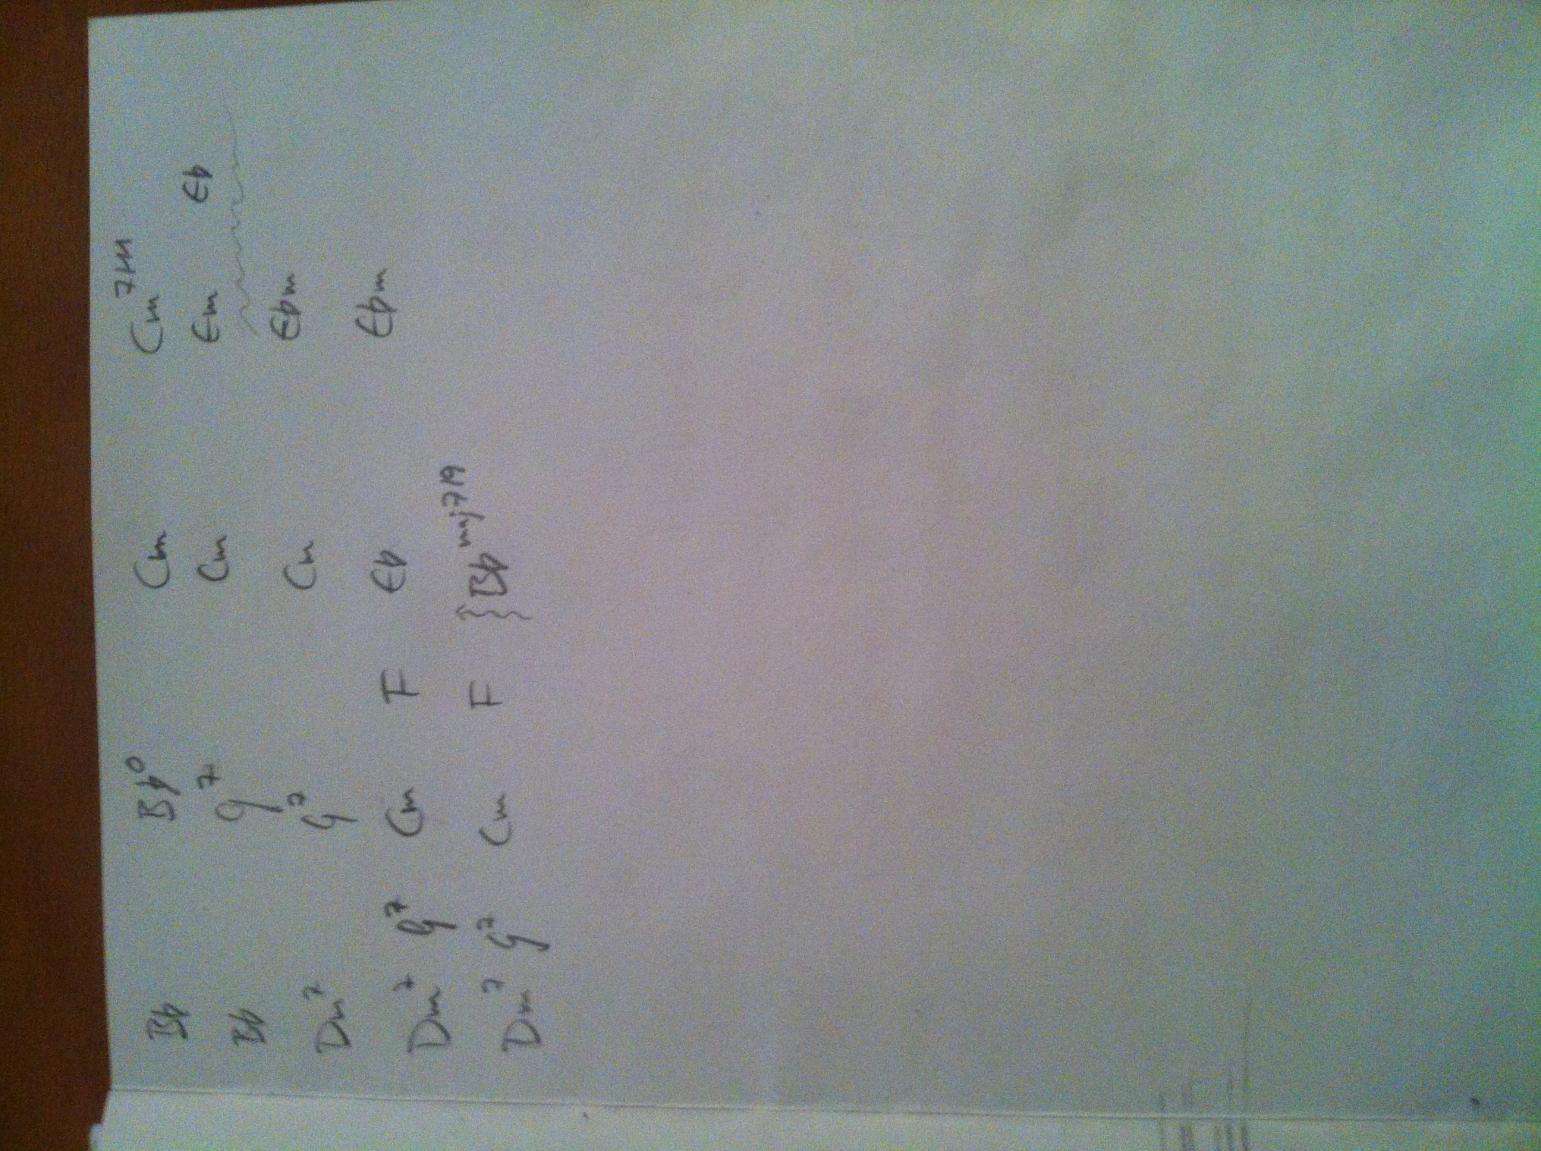 Bb Bb° Cm Cm 7
Bb G7 Cm Em Eb
Dm7 G7 Cm Ebm
Dm7 G7 Cm F Eb Ebm
Dm7 G7 Cm F }Bb mj7/9